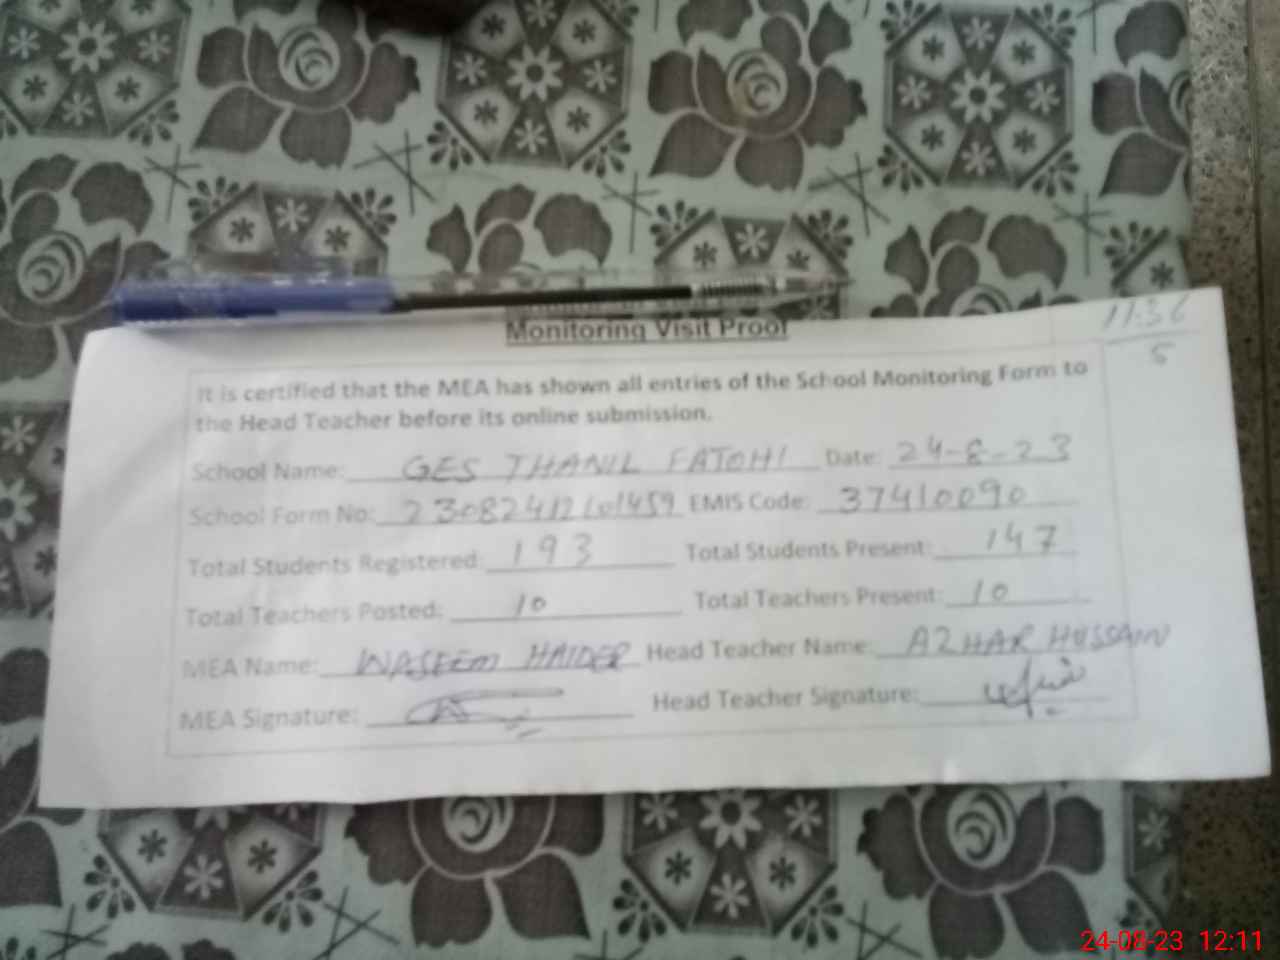 Monitoring Visit Proof
11:36
5
It is certified that the MEA has shown all entries of the School Monitoring Form to
the Head Teacher before its online submission.
School Name: GES THANIL FATOHI Date: 24-8-23
School Form No: EMIS Code: 37410090
Total Students Registered: 193 Total Students Present: 147
Total Teachers Posted: 10 Total Teachers Present: 10
MEA Name: WASEEM HAIDER Head Teacher Name: AZHAR HUSSAIN
MEA Signature: Head Teacher Signature:
24-08-23 12:11